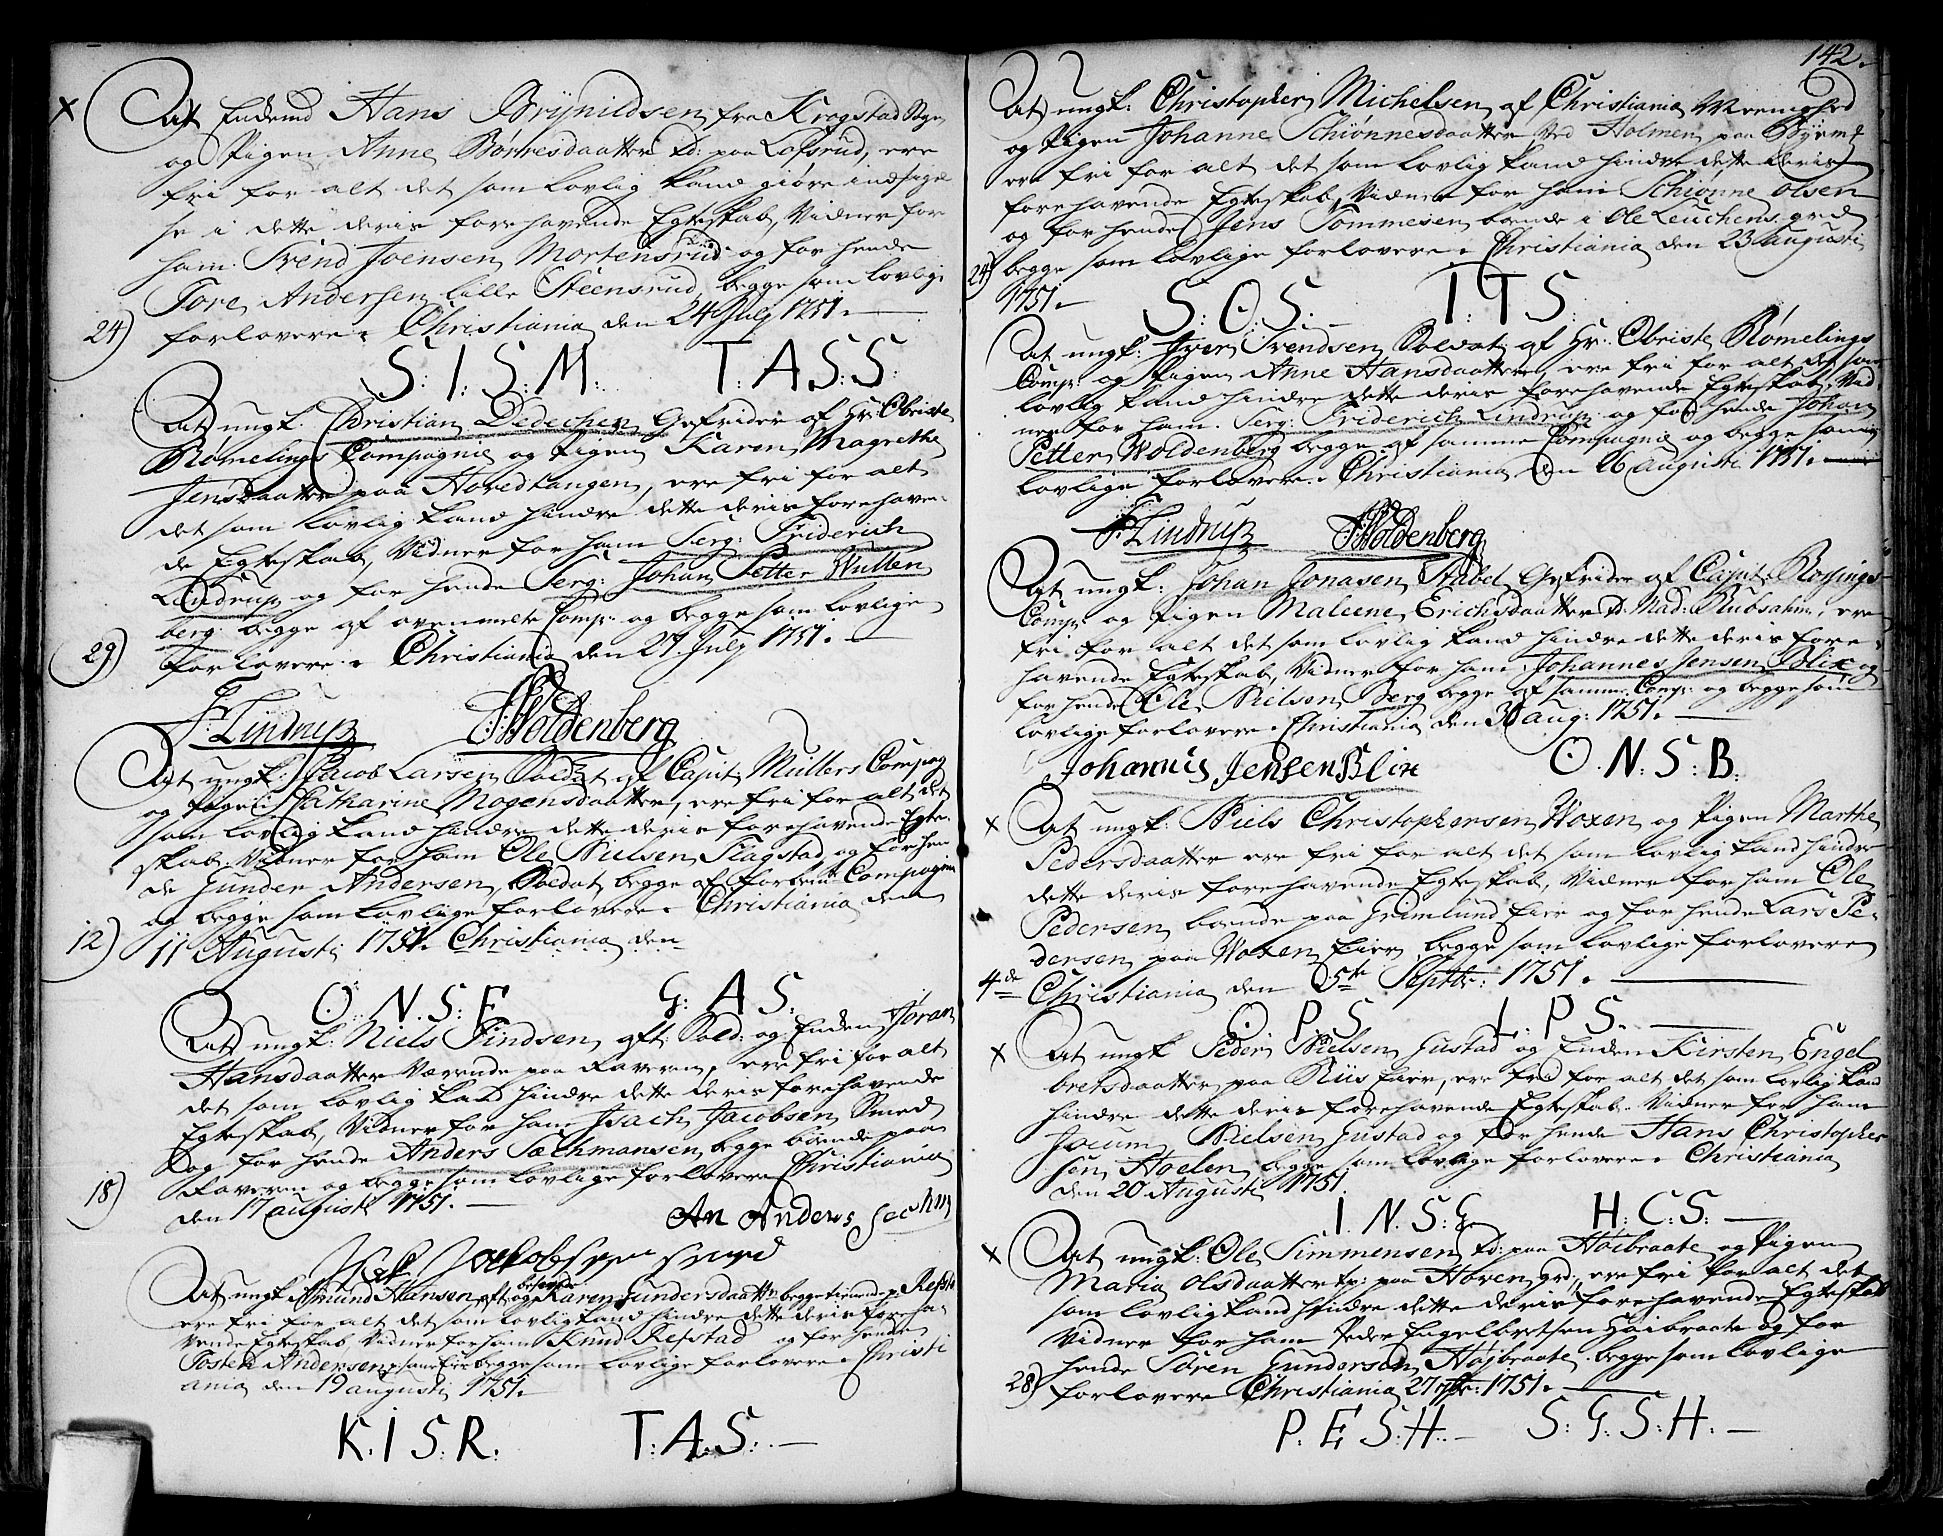 At Enkemd Hans Brynildsen fra Krogstad Sogn
og Pigen Anne Børresdaatter td: paa Lofsrud, ere
fri for alt det som lovlig kand giøre indsigel
se i dette deris forehavende Egteskab, Vidner for
ham Svend Joensen Mortensrud og for hende
Tore Andersen lille Steensrud, begge som lovlige
24) forlovere. Christiania den 24 July 1751.
S: I: S: M: T: A S: S:
At ungk. Christian Dedechen Gefrider af Hr: Obriste
Rømelings Compagnie og Pigen Karen Magrethe
Jensdaatter paa Hovedtangen, ere fri for alt
det som lovlig kand hindre dette deris forehaven-
de Egteskab, Vidner for ham Serg: Friderich
Lindrup og for hende Serg: Johan Petter Wullen
berg: begge af ovenmelte Comp: og begge som lovlige
29) forlovere. Christiania den 27. July 1751.
F. Lindrup Woldenberg
At ungk: Jacob Larsen Soldat af Capit: Mullers Compag
og Pigen Catharine Mogensdaatter, ere fri for alt det
som lovlig kand hindre dette deris forehavende Egte-
skab. Vidner for ham Ole Nielsen Flagstad og for hen
de Gunder Andersen, Soldat, begge af forbem: Compagnie
og begge som lovlige forlovere. Christiania den
12) 11 Augusti 1751. Christiania den
O. N. S: F G: A S:
At ungk: Niels Findsen aft: Sold: og Enken Jøran
Hansdaatter Værende paa Raveren, ere fri for alt
det som lovlig kand hindre dette deris forehavende
Egteskab, Vidner for ham Isach Jacobsen Smed
og for hende Anders Sachmansen, begge boende paa
Raveren og begge som lovlige forlovere Christiania
18) den 17 augusti 1751.
An Anders Sechm
Jsak Jackobsen smed
At ungk Amund Hansen aft: og besovede Karen Gundersdaatter begge tienende p: Refst
ere fri for alt det som lovlig kand hindre dette deris foreha-
vende Egteskab, Vidner for ham Knud Refstad og for hende
Tosten Andersen p: samme Eie begge som lovlige forlovere. Christi
ania den 19 augusti 1751.
K. I S. R. T: A. S:
142.
At ungk: Christopher Michelsen af Christiania Meenighed
og Pigen Johanne Schiønnesdaatter ved Holmen paa Byens g
ere fri for alt det som lovlig kand hindre dette deris
forehavende Egteskab, Vidner for ham Schiønne olsen
og for hende Jens Tommesen boende i Ole Leuchens grd
24) begge som lovlige forlovere. Christiania den 23 augusti
1751.
S: O S. I: T S:
At ungk: Iver Svendsen Soldat af Hr: Obriste Rømelings
Comp: og Pigen Anne Hansdaatter, ere fri for alt det som
lovlig kand hindre dette deris forehavende Egteskab. Vid
ner for ham Serg: Friderich Lindrup og for hende Johan
Petter Woldenberg begge af samme Compagnie og begge som
lovlige forlovere. Christiania den 26 augusti 1751.
F. Lindrup Woldenberg
At ungk: Johan Jonasen Stabel Gefrider af Capit: Rossings
Comp: og Pigen Maleene Erichsdaatter td: Mad: Rubsahm, ere
fri for alt det som lovlig kand hindre dette deris fore-
havende Egteskab, Vidner for ham Johannes Jensen Blix og
for hende Ole Nilsen Berg begge af samme Comp: og begge som
lovlige forlovere. Christiania den 30 aug: 1751.
Johannis Jensen Blix O. N: S: B:
At ungk: Niels Christophersen Woxen og Pigen Marthe
Pedersdaatter ere fri for alt det som lovlig kand hindre
dette deris forehavende Egteskab, Vidner for ham Ole
Pedersen boende paa Grimlund Eier og for hende Lars Pe-
dersen paa Woxen Eier, begge som lovlige forlovere
4de Christiania den 5te Septbr: 1751.
O P S L: P S.
At ungk Peder Nielsen Gustad og Enken Kirsten Engel
bretsdaatter paa Riis Eier, ere fri for alt det som lovlig kand
hindre dette deris forehavende Egteskab. Vidner for ham
Jocum Nielsen Gustad og for hende Hans Christopher
sen Hoelen begge som lovlige forlovere. Christiania
den 20 Augusti 1751
I. N. S: G H: C: S:
At ungk: Ole Simmensen td: paa Høibraate og Pigen
Maria olsdaatter tp: paa Hoven grd, ere fri for alt det
som lovlig kand hindre dette deris forehavende Egteskab
Vidner for ham Peder Engelbretsen Høibraate og for
hende Søren Gundersen Højbraate. begge som lovlige
28) forlovere Christiania 27 7br: 1751.
P. E S: H. S: G. S: H.